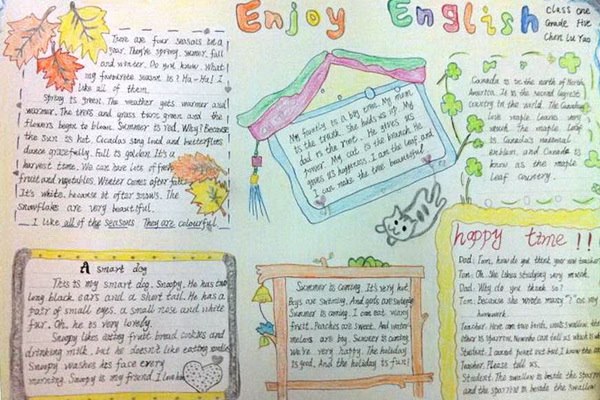 Enjoy English
Class one
Grade Five
Chen Lu Yao
There are four seasons in a
year. They're spring, summer, fall
and winter. Do you know What
my favourite season is? Ha-Ha! I
like all of them.
Spring is green. The weather gets warmer and
warmer. The trees and grass turn green and the
flowers begin to bloom. Summer is red. Why? Because
the sun is hot. Cicadas sing loud and butterflies
dance gracefully. Fall is golden. It's a
harvest time. We can have lots of fresh
fruit and vegetables. Winter comes after fall.
It's white, because it often snows. The
snowflakes are very beautiful.
I like all of the seasons They are colourful.
My family is a big tree. My mum
is the trunk. She holds us up. My
dad is the root. He gives us
power. My cat is the branch. He
gives us happiness. I am the leaf and
I can make the tree beautiful
Canada is in the north of North
America. It is the second largest
country in the world. The Canadian
maple leaves very
much the maple leaf
is Canada's national
emblem, and Canada is
know as the maple
leaf country.
A smart dog
This is my smart dog. Snoopy. He has two
long black ears and a short tail. He has a
pair of small eyes, a small nose and white
fur. Oh, he is very lovely.
Snoopy likes eating fruit bread cookies and
drinking milk. but he doesn't like eating
Snoopy washes his face every
morning. Snoopy is my friend. I love him
Summer is coming. It's very hot.
Boys are swimming. And girls are swimming
Summer is coming. I can eat many
fruit. Peaches are sweet. And water
melons are big. Summer is coming.
We're very happy. The holiday
is good. And the holiday is fun!
happy time!!!
Dad: Tom, how do you think your new teacher
Tom: Oh. She likes studying very much.
Dad: Why do you think so?
Tom: Because she wrote many "?" on my
homework.
Teacher: Here are two birds, one is swallow, the
other is sparrow. Now who can tell us which is
Student: I cannot point out but I know the
Teacher: Please tell us.
Student: The swallow is beside the sparrow
and the sparrow is beside the swallow!